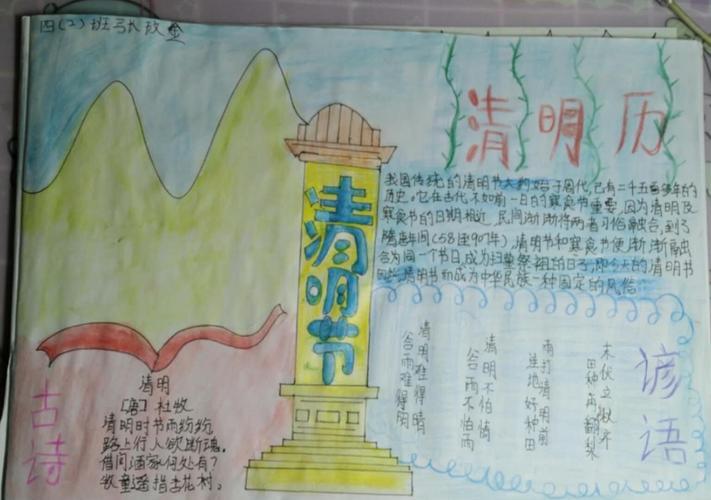 四(2)班张放金
清明历
清明节
我国传统的清明节大约始于周代,已有二千五百多年的
历史。它在古代不如前一日的寒食节重要,因为清明及
寒食节的日期相近,民间渐渐将两者习俗融合,到了
隋唐年间(581至907年),清明节和寒食节便渐渐融
合为同一个节日,成为扫墓祭祖的日子,即今天的清明节
清明节已成为中华民族一种固定的风俗!
古诗
清明
[唐] 杜牧
清明时节雨纷纷,
路上行人欲断魂。
借问酒家何处有?
牧童遥指杏花村。
谚语
雨打清明前
洼地好种田
清明不怕晴
谷雨不怕雨
清明难得晴
谷雨难得阴